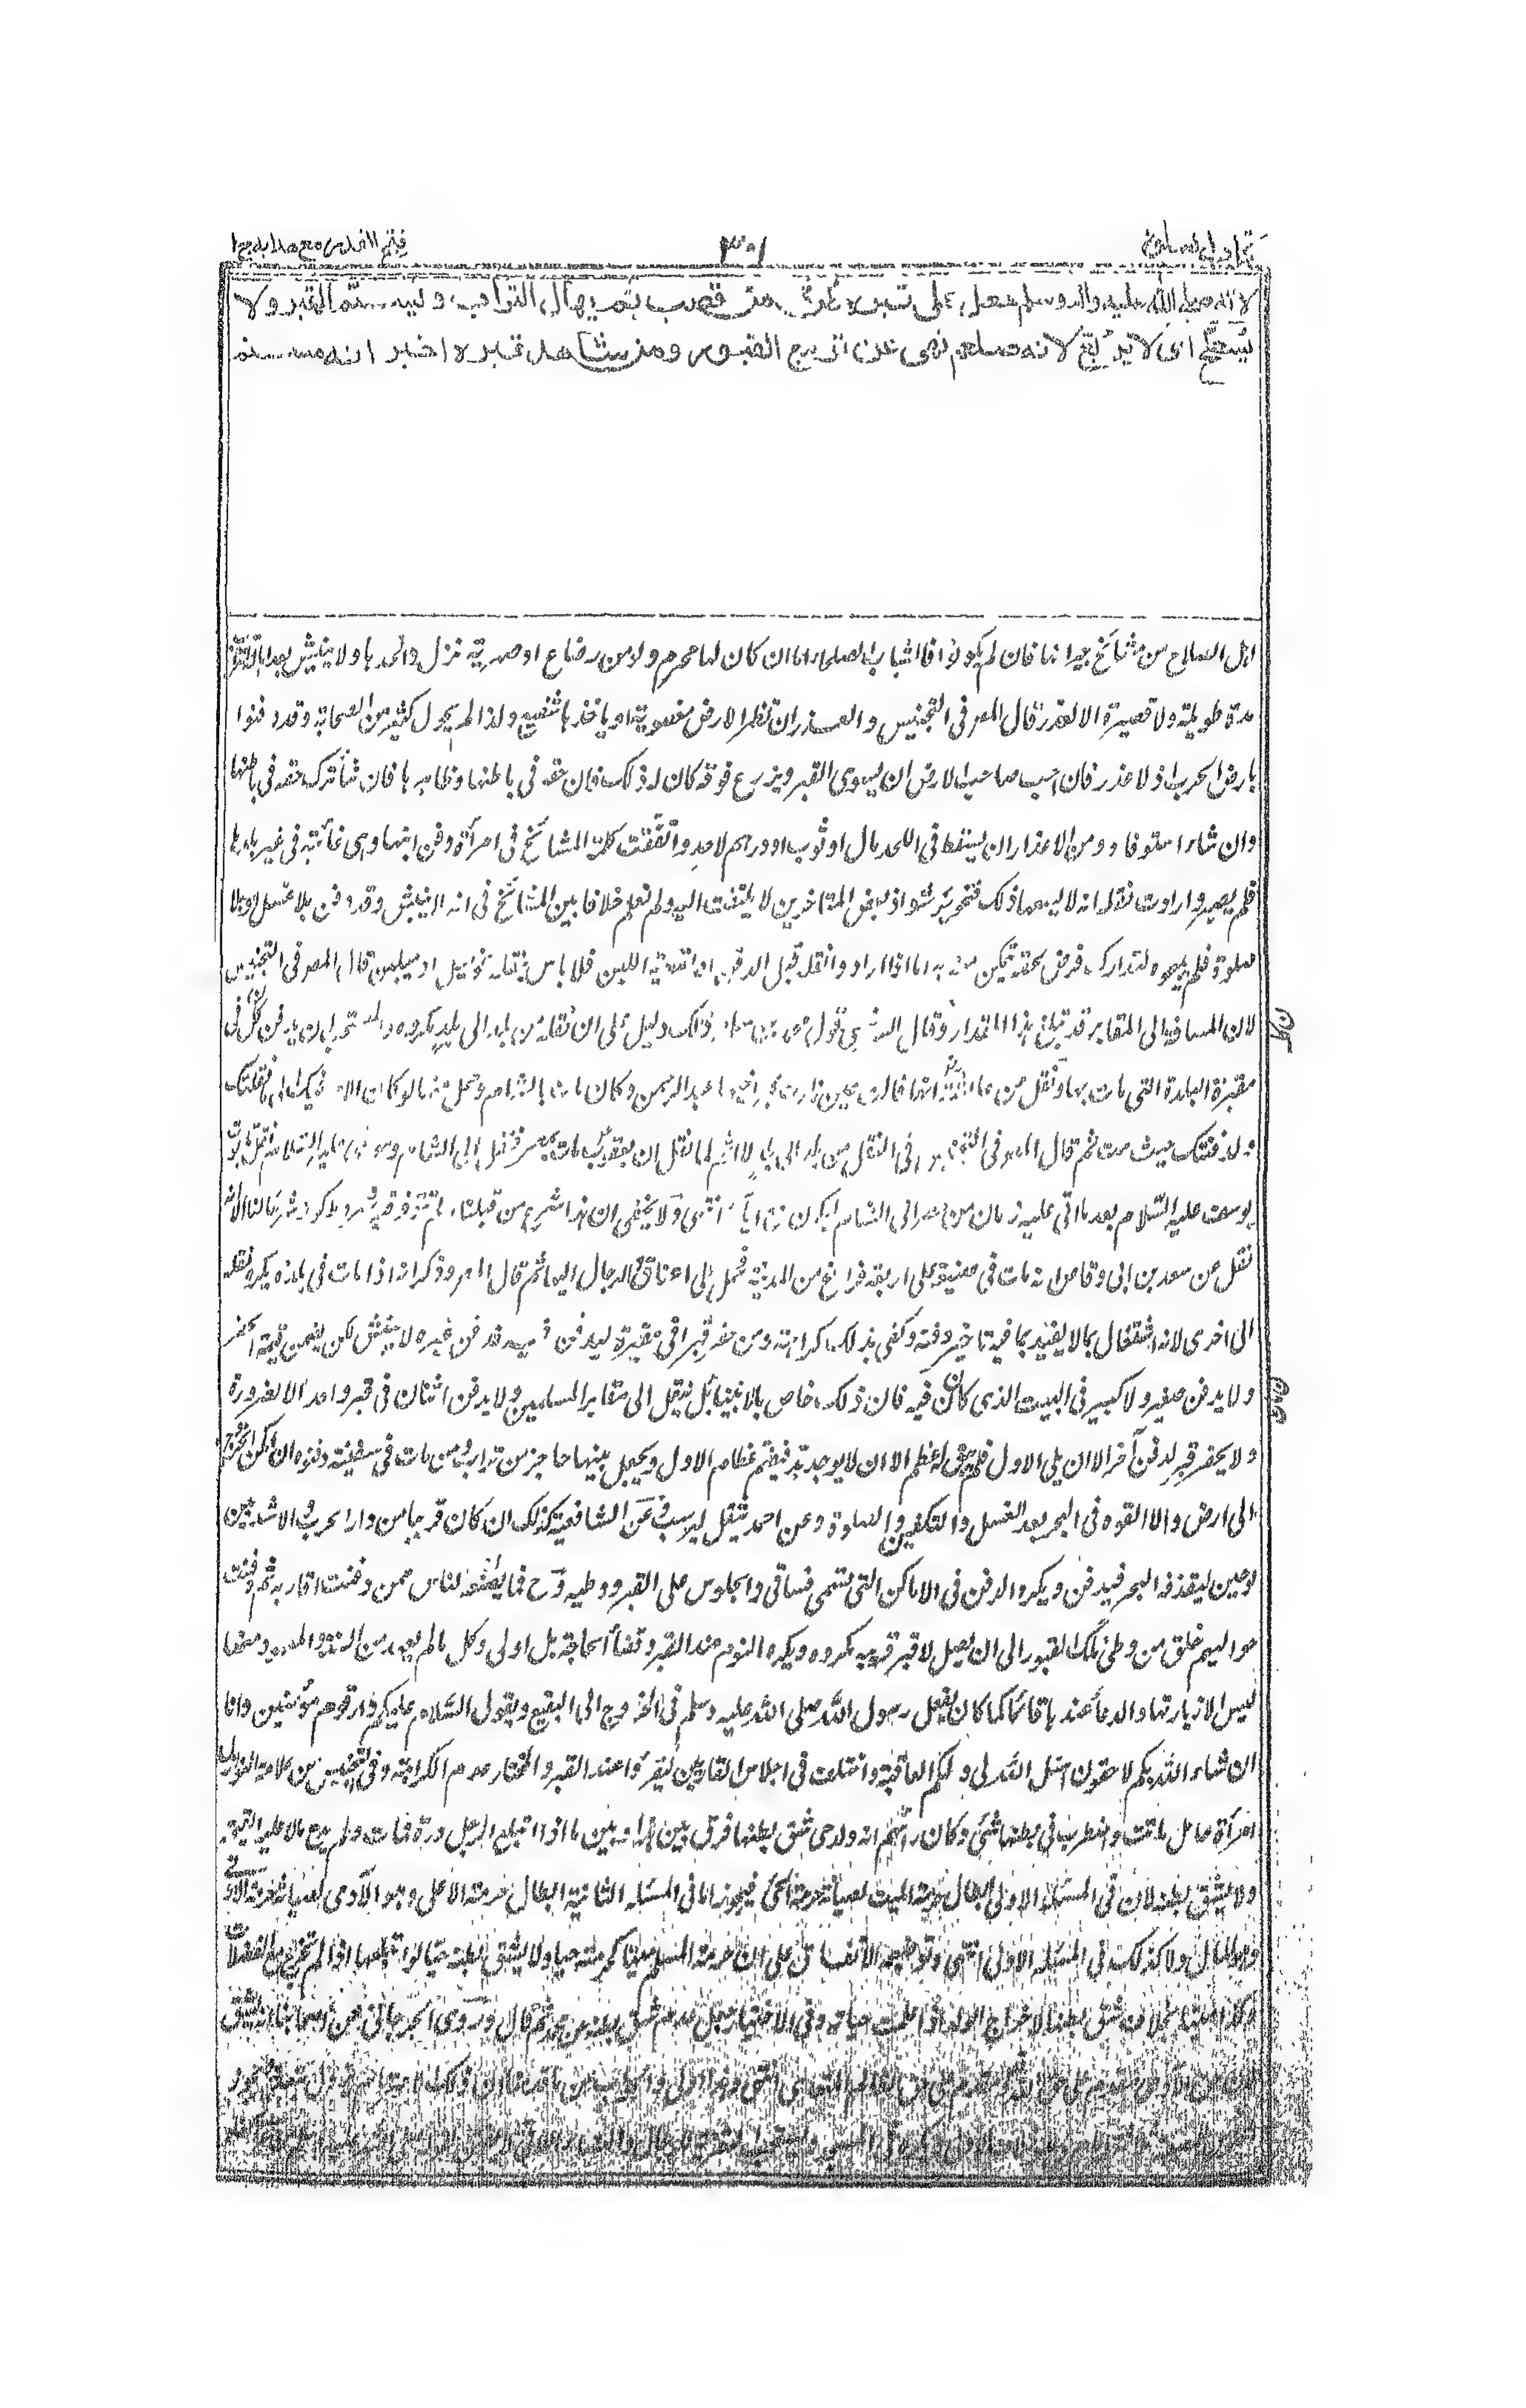 فتح القدير مع هداية ج ا
٣٠١
كتاب الصلوة
لانه صلى الله عليه واله وسلم جعل على قبره طن من قصب ثم يهال التراب ويسنم القبر ولا
يسطح اى لا يربع لانه صلعم نهى عن تربيع القبور ومن شاهد قبره اخبر انه مسنم
اهل الصلاح من مشائخ جيرانها فان لم يكونوا فالشباب الصلحاء اما ان كان لها محرم ولو من رضاع او صهرية نزل والحدها ولا ينبش بعد اهالة التراب
مدة طويلة ولا قصيرة الا لعذر قال المص فى التجنيس والعذر ان تظهر الارض مغصوبة او ياخذها شفيع ولذا لم يحول كثير من الصحابة وقد دفنوا
بارض الحرب اذ لا عذر فان احب صاحب الارض ان يسوى القبر ويزرع فوقه كان له ذلك فان حقه فى باطنها وظاهرها فان شاء ترك حقه فى باطنها
وان شاء استوفاه ومن الاعذار ان يسقط فى اللحد مال او ثوب او درهم لاحد واتفقت كلمة المشائخ فى امرأة دفن ابنها وهى غائبة فى غير بلدها
فلم تصبر وارادت نقله انه لا يسعها ذلك فتجويز شواذ بعض المتاخرين لا يلتفت اليه ولم نعلم خلافا بين المشائخ فى انه لا ينبش وقد دفن بلا غسل او بلا
صلوة فلم يبيحوه لتدارك فرض لحقه يتمكن منه به اما اذا ارادوا نقله قبل الدفن او تسوية اللبن فلا باس بنقله نحو ميل او ميلين قال المص فى التجنيس
لان المسافة الى المقابر قد تبلغ هذا المقدار وقال السرخسى قول محمد بن سلمة ذلك دليل على ان نقله من بلد الى بلد مكروه والمستحب ان يدفن كل فى
مقبرة البلدة التى مات بها ونقل عن عائشة انها قالت حين زارت قبر اخيها عبد الرحمن وكان مات بالشام وحمل منها لو كان الامر فيك الى ما نقلتك
ولدفنتك حيث مت ثم قال المص فى التجنيس فى النقل من بلد الى بلد لا اثم لما نقل ان يعقوب مات بمصر فنقل الى الشام وموسى عليه السلام نقل تابوت
يوسف عليه السلام بعد ما اتى عليه زمان من مصر الى الشام ليكون مع آبائه انتهى ولا يخفى ان هذا شرع من قبلنا ولم تتوفر فيه شروط كونه شرعا لنا الا انه
نقل عن سعد بن ابى وقاص انه مات فى ضيعة على اربعة فراسخ من المدينة فحمل على اعناق الرجال اليها ثم قال المص وذكر انه اذا مات فى بلدة يكره نقله
الى اخرى لانه اشتغال بما لا يفيد بما فيه تاخير دفنه وكفى بذلك كراهة ومن حفر قبرا فى مقبرة ليدفن فيه فدفن غيره لا ينبش لكن يضمن قيمة الحفر
ولا يدفن صغير ولا كبير فى البيت الذى كان فيه فان ذلك خاص بالانبياء بل ينقل الى مقابر المسلمين ولا يدفن اثنان فى قبر واحد الا لضرورة
ولا يحفر قبر لدفن آخر الا ان بلى الاول فلم يبق له عظم الا ان لا يوجد بد فيضم عظام الاول ويجعل بينهما حاجز من تراب ومن مات فى سفينة دفنوه ان امكن الخروج
الى ارض والا القوه فى البحر بعد الغسل والتكفين والصلوة وعن احمد يثقل ليرسب وعن الشافعية كذلك ان كان قريبا من دار الحرب والا شد بين
لوحين ليقذفه البحر فيدفن ويكره الدفن فى الاماكن التى تسمى فساقى والجلوس على القبر ووطيه وح فما يصنعه الناس ممن دفنت اقاربه ثم دفنت
حواليهم خلق من وطئ تلك القبور الى ان يصل لا قبر قريبه مكروه ويكره النوم عند القبر وقضاء الحاجة بل اولى وكل ما لم يعهد من السنة والمعهود منها
ليس الا زيارتها والدعاء عندها قائما كما كان يفعل رسول الله صلى الله عليه وسلم فى الخروج الى البقيع ويقول السلام عليكم دار قوم مؤمنين وانا
ان شاء الله بكم لاحقون اسئل الله لى ولكم العافية واختلف فى اجلاس القارئين ليقرؤا عند القبر والمختار عدم الكراهة وفى التجنيس من علامة النوازل
امرأة حامل ماتت واضطرب فى بطنها شئ وكان رايهم انه ولد حى شق بطنها فرق بين هذا وبين ما اذا ابتلع الرجل درة فمات ولم يدع مالا عليه القيمة
ولا يشق بطنه لان فى المسئلة الاولى ابطال حرمة الميت لصيانة حرمة الحى فيجوز اما فى المسئلة الثانية ابطال حرمة الاعلى وهو الآدمى لصيانة حرمة الادنى
وهو المال ولا كذلك فى المسئلة الاولى انتهى وتوضيحه الاتفاق على ان حرمة المسلم ميتا كحرمته حيا ولا يشق بطنه حيا لو ابتلعها اذا لم تخرج مع الفضلات